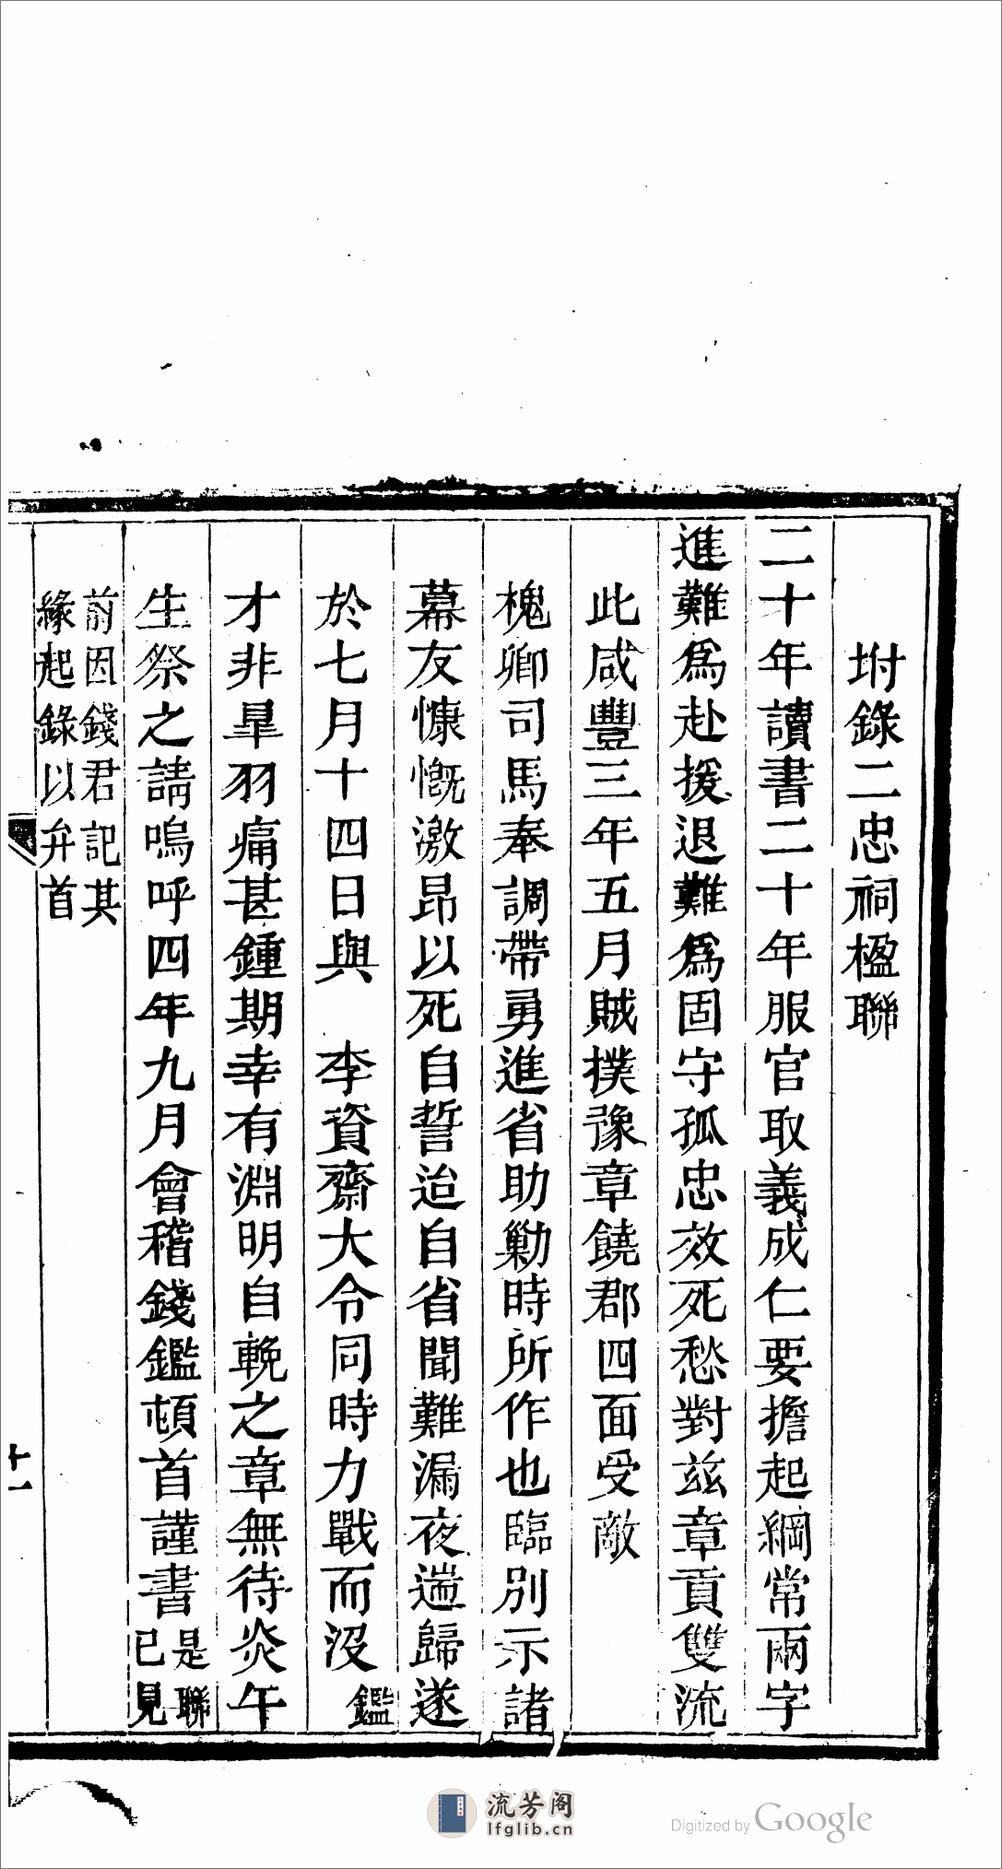 坿錄二忠祠楹聯
二十年讀書二十年服官取義成仁要擔起綱常兩字
進難爲赴援退難爲固守孤忠效死愁對茲章貢雙流
此咸豐三年五月賊撲豫章饒郡四面受敵
槐卿司馬奉調帶勇進省助勦時所作也臨別示諸
幕友慷慨激昂以死自誓迨自省聞難漏夜遄歸遂
於七月十四日與　李資齋大令同時力戰而沒鑑
才非羣羽痛甚鍾期幸有淵明自輓之章無待炎午
生祭之請嗚呼四年九月會稽錢鑑頓首謹書是聯已見
前因錢君記其
緣起錄以弁首
十一
流芳阁
lfglib.cn
Digitized by Google